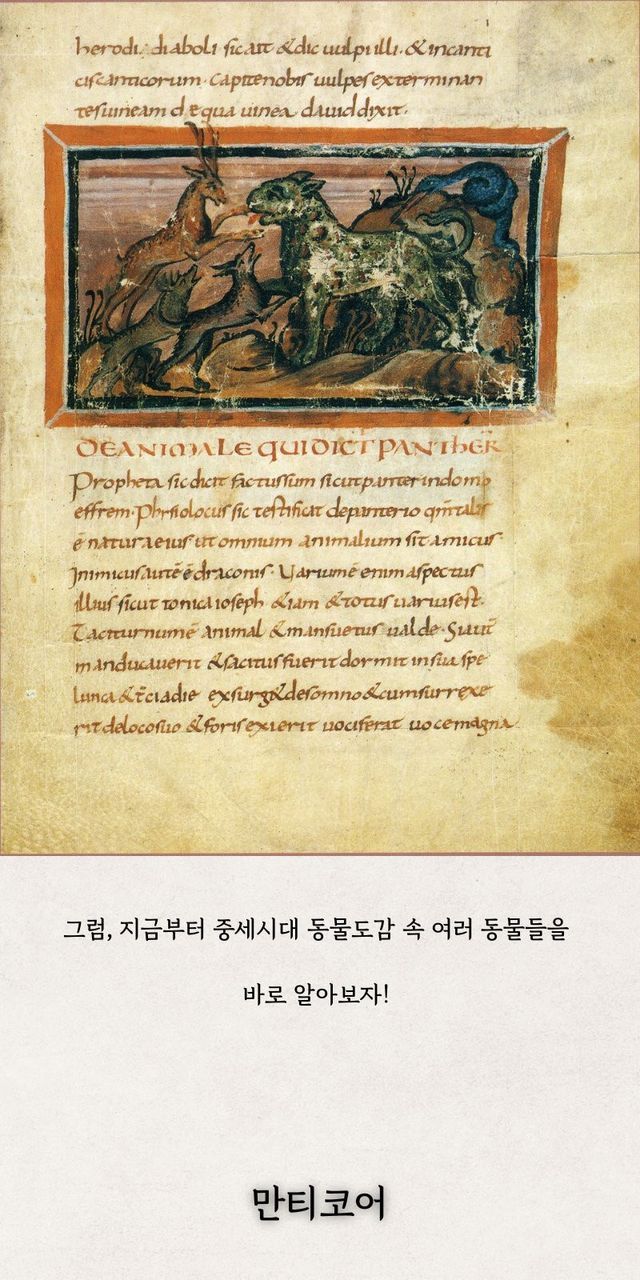 herodi. diaboli sic ait & dic uulpi illi. & incanti
cis canticorum. Capite nobis uulpes exterminan
tes uineam
dauid dixit.
DE ANIMALE QUI DICIT PANTHER
Propheta sic dicit factus sum sicut panter in domo
effrem. Phisiolocus sic testificat de panterio qm̄ talis
ē natura eius ut omnium animalium sit amicus.
Inimicus autē ē draconis. Uarium ē enim aspectus
illius sicut tonica ioseph
& totus uarius est.
Taciturnum ē animal & mansuetus ualde. Si aut̄
manducauerit & sacitus fuerit dormit in sua spe
lunca & t̄cia die exsurg& de somno & cum surrexe
rit de loco suo & foris exierit uociferat uoce magna
그럼, 지금부터 중세시대 동물도감 속 여러 동물들을
바로 알아보자!
만티코어